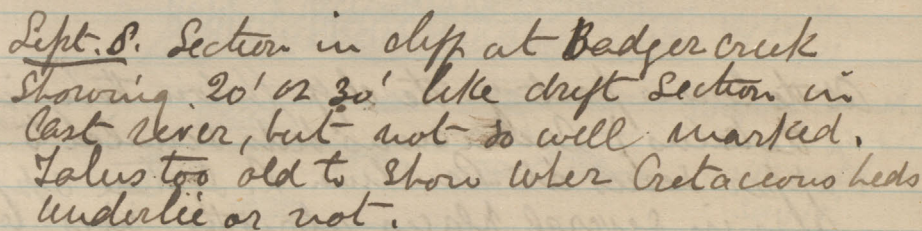 Sept. 8. Section in cliff at Badger creek
showing 20' or 30' like drift section in
last river, but not so well marked.
Talus too old to show wher Cretaceous beds
underlie or not.